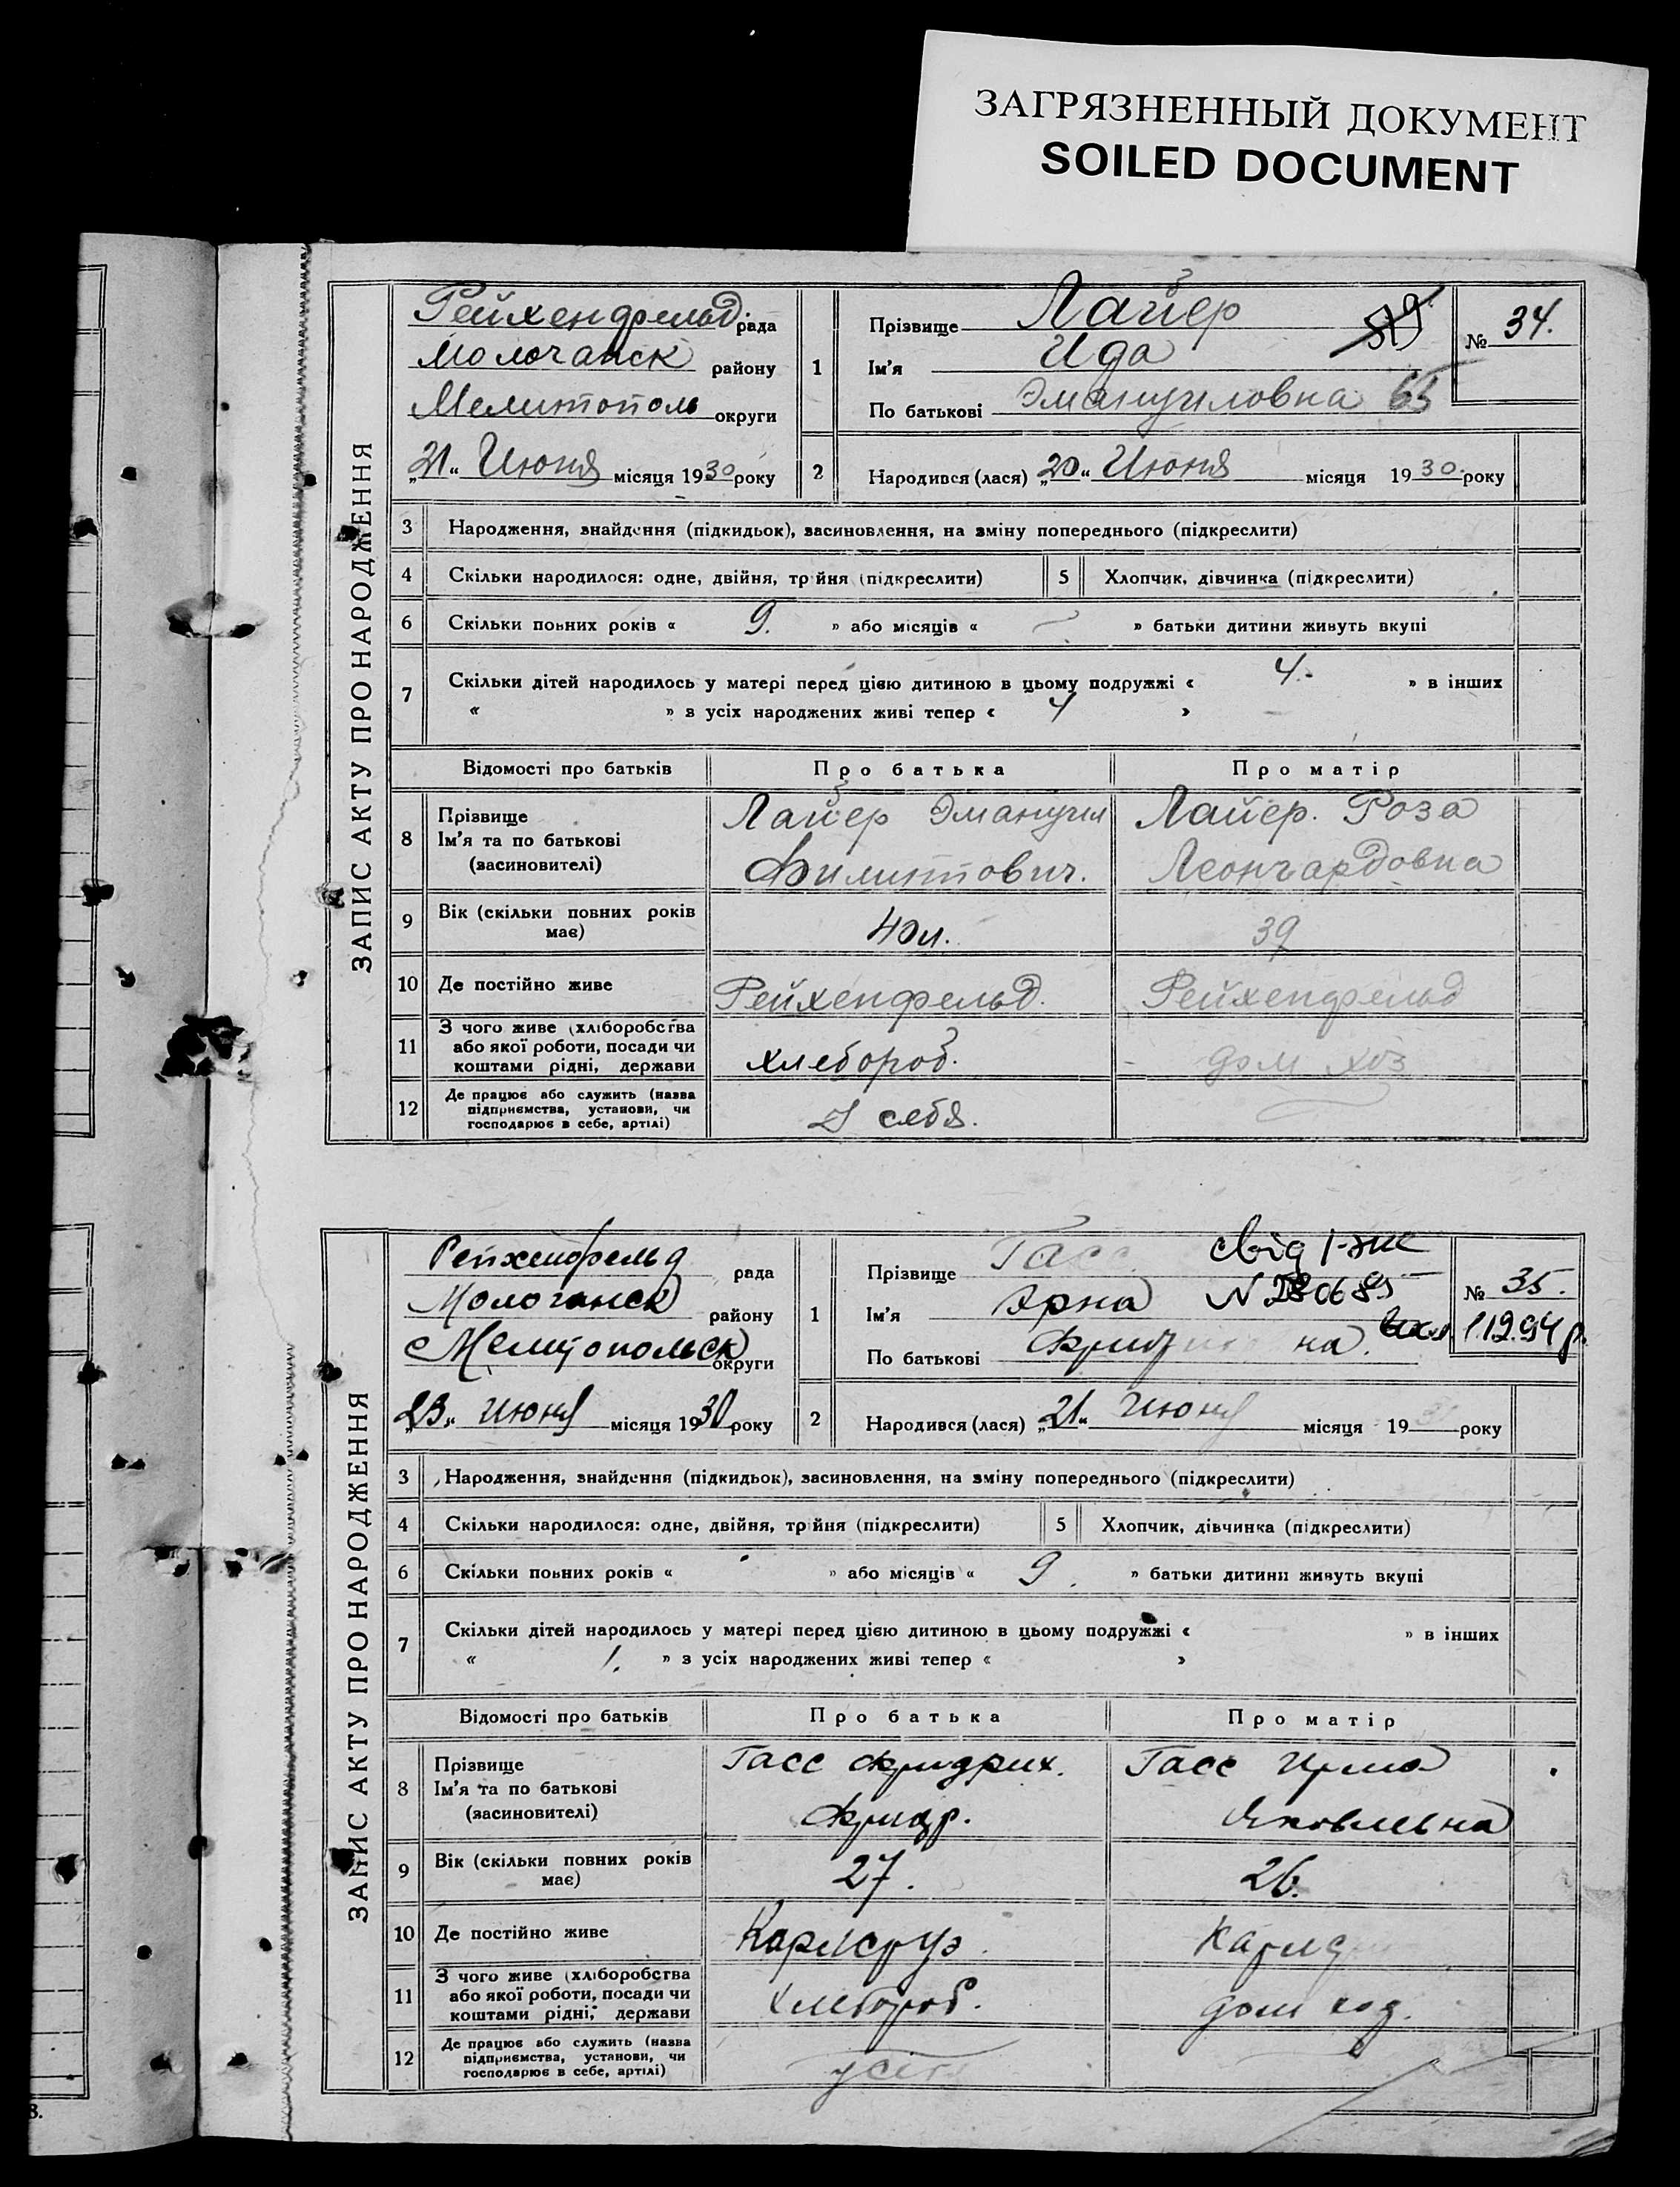 ЗАГРЯЗНЕННЫЙ ДОКУМЕНТ
SOILED DOCUMENT
ЗАПИС АКТУ ПРО НАРОДЖЕННЯ
Рейхенфельд рада
Молочанск району
Мелитополь округи
„21“ Июня місяця 1930 року
1
Прізвище Лайер
Ім’я Ида
По батькові Эмануиловна 65
№ 34.
2
Народився (лася) „20“ Июня місяця 1930. року
3 Народження, знайдення (підкидьок), засиновлення, на зміну попереднього (підкреслити)
4 Скільки народилося: одне, двійня, трійня (підкреслити)
5 Хлопчик, дівчинка (підкреслити)
6 Скільки повних років « 9. » або місяців « » батьки дитини живуть вкупі
7 Скільки дітей народилось у матері перед цією дитиною в цьому подружжі « 4. » в інших
« » з усіх народжених живі тепер « 4 »
Відомості про батьків
Про батька
Про матір
8 Прізвище
Ім’я та по батькові
(засиновителі)
Лайер Эмануил
Филиппович.
Лайер. Роза
Леонгардовна
9 Вік (скільки повних років
має)
40 л.
39
10 Де постійно живе
Рейхенфельд.
Рейхенфельд
11 З чого живе (хліборобства
або якої роботи, посади чи
коштами рідні, держави
хлебороб.
дом хоз
12 Де працює або служить (назва
підприємства, установи, чи
господарює в себе, артілі)
У себя.
ЗАПИС АКТУ ПРО НАРОДЖЕННЯ
Рейхенфельд рада
Молочанск району
Мелитопольск округи
„23“ июня місяця 1930 року
1
Прізвище Гасс
Ім’я Эрна
По батькові
свід
№ 35.
1.12.94 р.
2
Народився (лася) „21“ Июня місяця 19 року
3 Народження, знайдення (підкидьок), засиновлення, на зміну попереднього (підкреслити)
4 Скільки народилося: одне, двійня, трійня (підкреслити)
5 Хлопчик, дівчинка (підкреслити)
6 Скільки повних років « » або місяців « 9. » батьки дитини живуть вкупі
7 Скільки дітей народилось у матері перед цією дитиною в цьому подружжі « » в інших
« 1. » з усіх народжених живі тепер « »
Відомості про батьків
Про батька
Про матір
8 Прізвище
Ім’я та по батькові
(засиновителі)
Гасс Фридрих.
Фридр.
Гасс Ирма
Яковлевна
9 Вік (скільки повних років
має)
27.
26.
10 Де постійно живе
Карлсруэ.
11 З чого живе (хліборобства
або якої роботи, посади чи
коштами рідні, держави
хлебороб.
дом хоз.
12 Де працює або служить (назва
підприємства, установи, чи
господарює в себе, артілі)